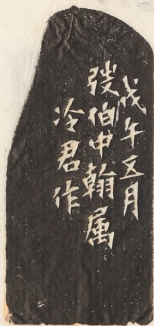 戊午五月
弢伯中翰属
冷君作